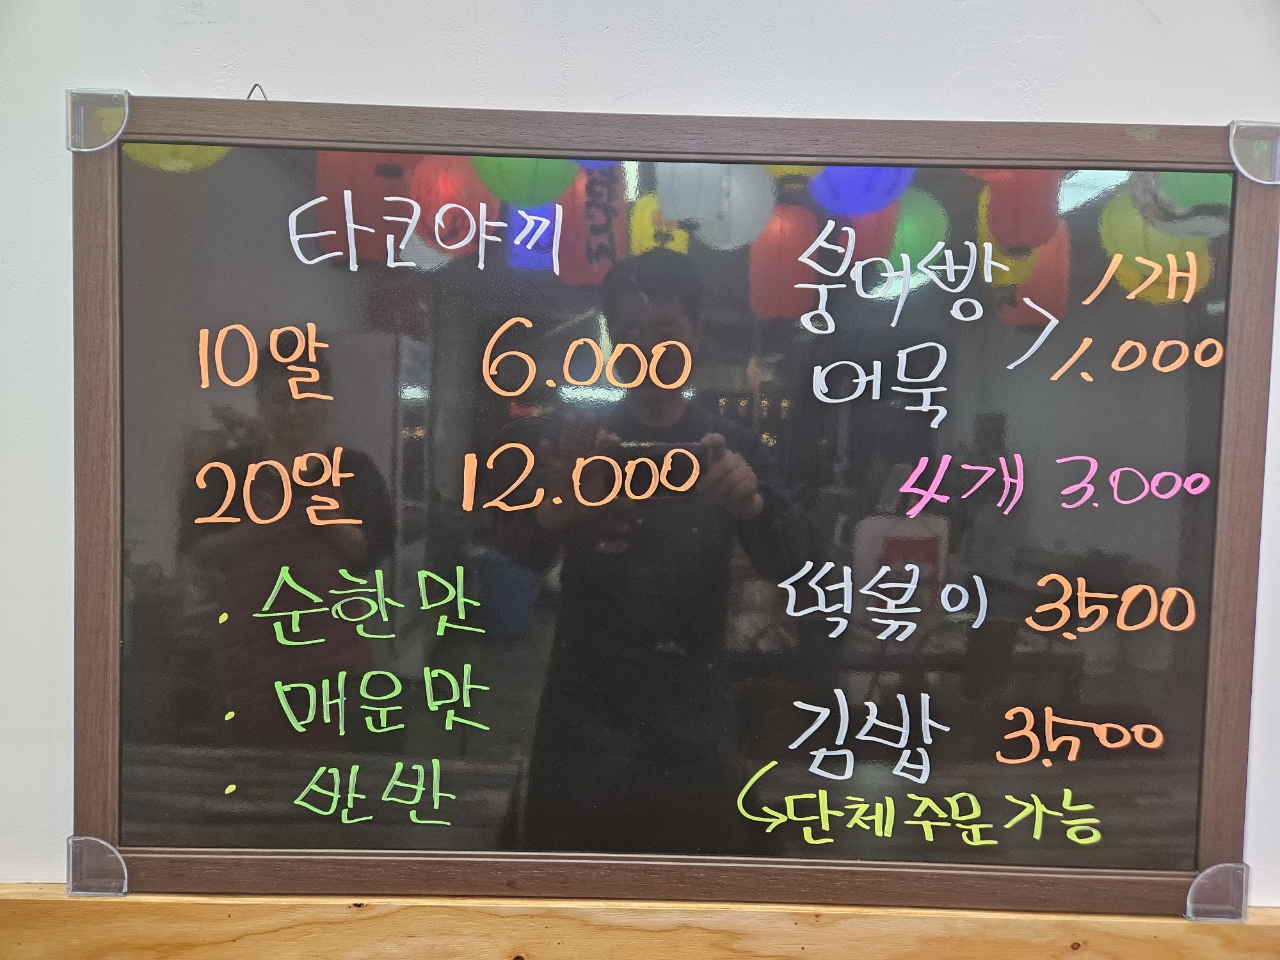 타코야끼
10알 6.000
20알 12.000
· 순한맛
· 매운맛
· 반반
붕어빵 1개
어묵 > 1.000
4개 3.000
떡볶이 3.500
김밥 3.500
↳단체 주문 가능